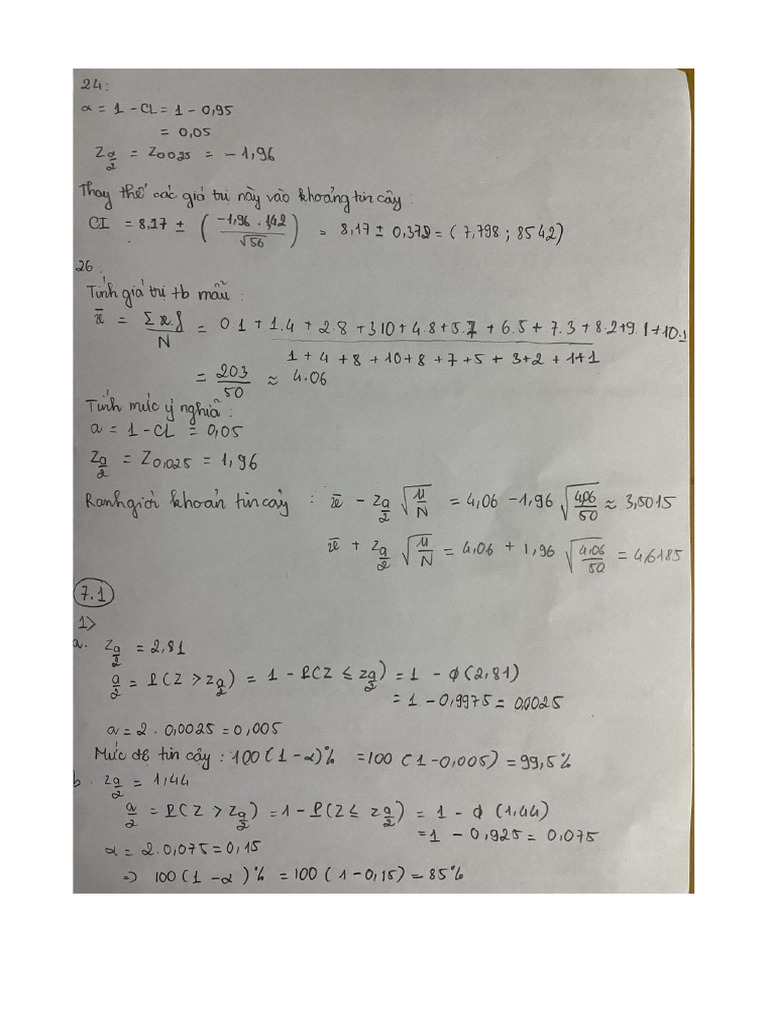 24:
α = 1 - CL = 1 - 0,95
= 0,05
Z_{α/2} = Z_{0025} = -1,96
Thay thế các giá trị này vào khoảng tin cậy:
CI = 8.17 ± (-1,96 . 1,42 / √56) = 8,17 ± 0,372 = (7,798 ; 8542)
26:
Tính giá trị tb mẫu:
x̄ = Σx.f / N = 0 1 + 1.4 + 2.8 + 310 + 4.8 + 5.7 + 6.5 + 7.3 + 8.2 + 9.1 + 10.1 / 1 + 4 + 8 + 10 + 8 + 7 + 5 + 3 + 2 + 1 + 1
= 203/50 ≈ 4.06
Tính mức ý nghĩa:
α = 1 - CL = 0,05
Z_{α/2} = Z_{0,025} = 1,96
Ranh giới khoản tin cảy : x̄ - z_{α/2} √(μ/N) = 4,06 - 1,96 √(4,06/50) ≈ 3,5015
x̄ + z_{α/2} √(μ/N) = 4,06 + 1,96 √(4.06/50) = 4,6185
7.1
1>
a. z_{α/2} = 2,81
α/2 = P(Z > z_{α/2}) = 1 - P(Z ≤ z_{α/2}) = 1 - φ(2,81)
= 1 - 0,9975 = 0,0025
α = 2 . 0,0025 = 0,005
Mức độ tin cậy : 100(1-α)% = 100(1-0,005) = 99,5%
b. z_{α/2} = 1,44
α/2 = P(Z > z_{α/2}) = 1 - P(Z ≤ z_{α/2}) = 1 - φ(1,44)
= 1 - 0,925 = 0,075
α = 2.0,075 = 0,15
⇒ 100(1-α)% = 100(1-0,15) = 85%